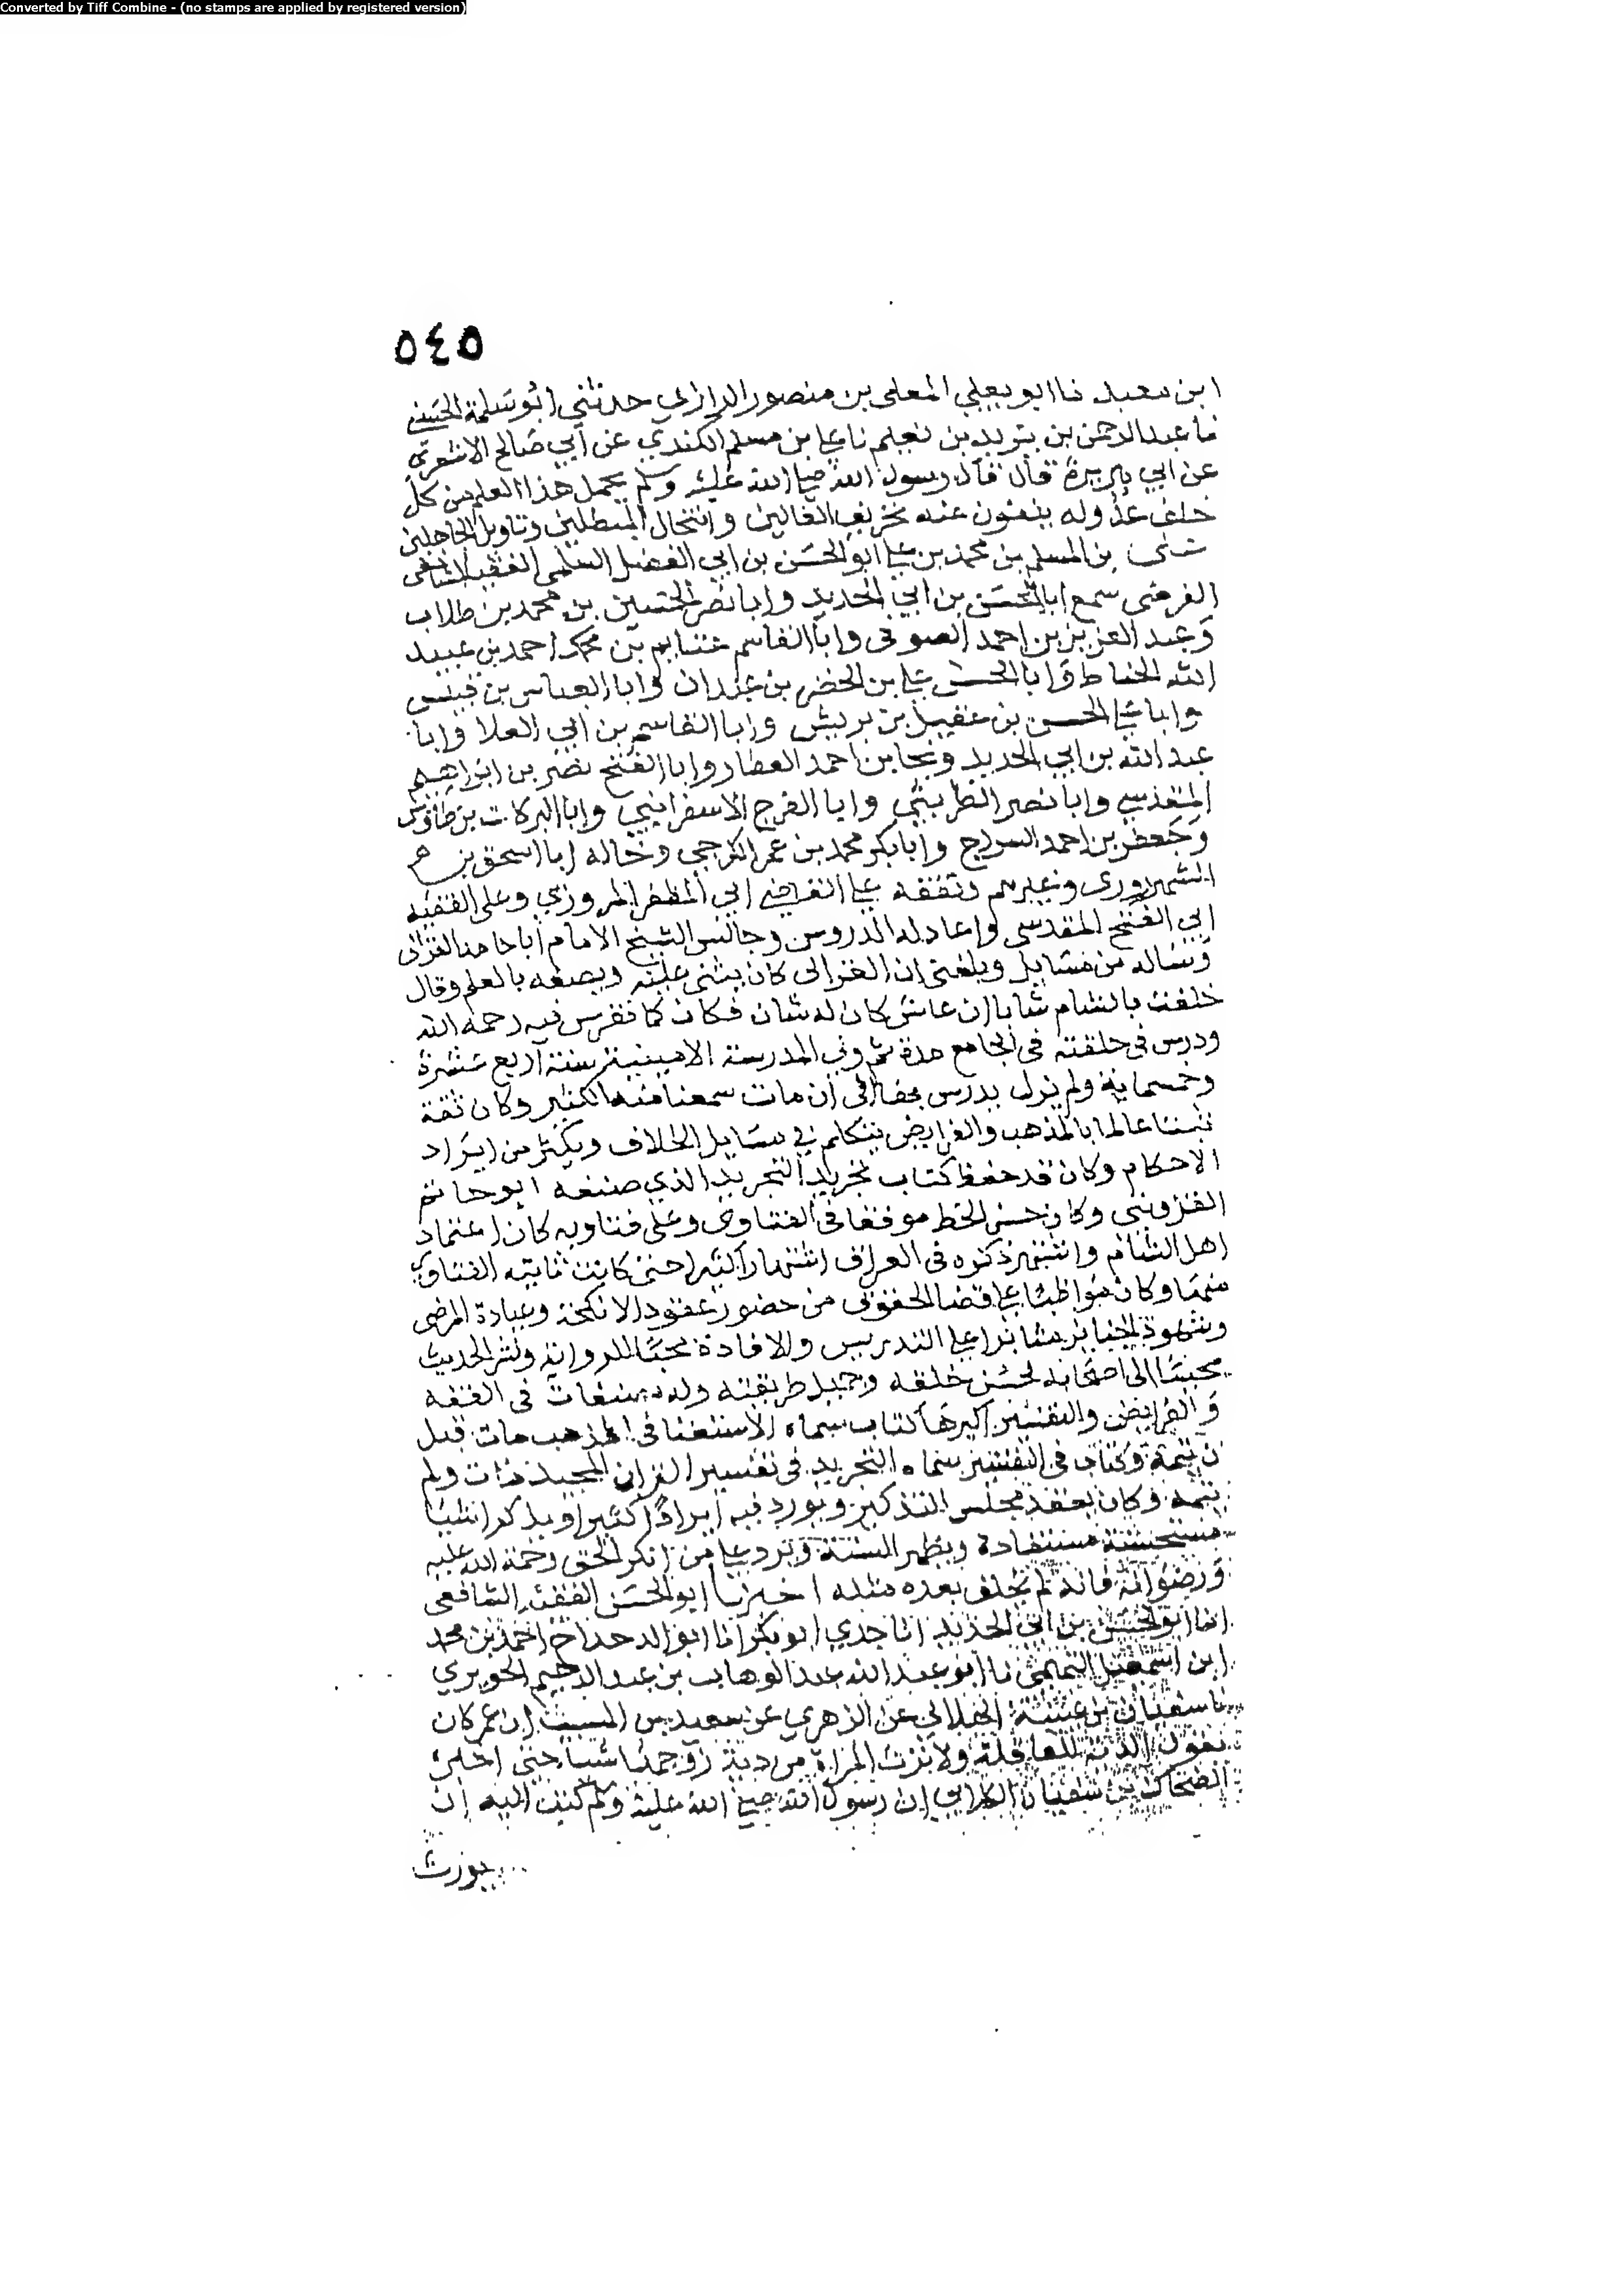 Converted by Tiff Combine - (no stamps are applied by registered version)
٥٤٥
ابن معبد نا ابو يعلي المعلى بن منصور الرازي حدثني ابو سلمة الخشني
نا عبد الرحمن بن يزيد بن نا علي بن مسلم الكندي عن ابي صالح الاشعري
عن ابي هريرة قال قال رسول الله صلى الله عليه وسلم يحمل هذا العلم من كل
خلف عدوله ينفون عنه تحريف الغالين وانتحال المبطلين وتاويل الجاهلين
علي بن المسلم بن محمد بن علي ابو الحسن بن ابي الفضل السلمي الفقيه الشافعي
الفرضي سمع ابا الحسن بن ابي الحديد وابا نصر الحسين بن محمد بن طلاب
وعبد العزيز بن احمد الصوفي وابا القاسم غنايم بن احمد بن عبيد
الله الخياط وابا الحسن علي بن الخضر بن عبدان وابا العباس بن قبيس
وابا علي الحسن بن عقيل بن بريش وابا القاسم بن ابي العلا وابا
عبد الله بن ابي الحديد ونجا بن احمد العطار وابا الفتح نصر بن ابراهيم
المقدسي وابا نصر الطريثيثي وابا الفرج الاسفرايني وابا البركات بن طاوس
وجعفر بن احمد السراج وابا بكر محمد بن عمر الكرجي وخاله ابا اسحق بن
الشهرزوري وغيرهم وتفقه على القاضي ابي المظفر المروزي وعلى الفقيه
ابي الفتح المقدسي واعاد له الدروس وجالس الشيخ الامام ابا حامد الغزالي
وساله من مسايل وبلغني ان الغزالي كان يثني عليه ويصفه بالعلم وقال
خلفت بالشام شابا ان عاش كان له شان فكان كما تفرس فيه رحمه الله
ودرس في حلقته في الجامع مدة ثم ولي المدرسة الامينية سنة اربع عشرة
وخمسماية ولم يزل يدرس بها الى ان مات سمعنا منه الكثير وكان ثقة
ثبتا عالما بالمذهب والفرايض يتكلم في مسايل الخلاف ويكثر من ايراد
الاحكام وكان قد حفظ كتاب تجريد التجريد الذي صنفه ابو حاتم
القزويني وكان حسن الخط موفقا في الفتاوى وعلى فتاويه كان اعتماد
اهل الشام وانتشر ذكره في العراق اشتهارا كثيرا حتى كانت تاتيه الفتاوي
منها وكان مواظبا على قضا الحقوق من حضور عقود الانكحة وعيادة المرضى
وشهود الجنايز مثابرا على التدريس والافادة محبا للرواية ونشر الحديث
محببا الى اصحابه لحسن خلقه وجميل طريقته وله مصنفات في الفقه
والفرايض والتفسير اكبرها كتاب سماه الاستغنا في المذهب مات قبل
ان يتمه وكتاب في التفسير سماه التجريد في تفسير القران المجيد مات ولم
يتمه وكان يعقد مجلس التذكير ويورد فيه ايرادا كثيرا ويذكر اشيا
مستحسنة مستفادة ويظهر السنة ويرد على من انكر الحق رحمة الله عليه
ورضوانه فانه لم يخلف بعده مثله اخبرنا ابو الحسن الفقيه الشافعي
انا ابو الحسن بن ابي الحديد انا جدي ابو بكر انا ابو الدحداح احمد بن محمد
ابن اسمعيل التميمي نا ابو عبد الله عبد الوهاب بن عبد الرحيم الجوبري
نا سفيان بن عيينة الهلالي عن الزهري عن سعيد بن المسيب ان عمر كان
يقول الدية للعاقلة ولا ترث المراة من دية زوجها شيا حتى اخبره
الضحاك بن سفيان الكلابي ان رسول الله صلى الله عليه وسلم كتب اليه ان
يورث